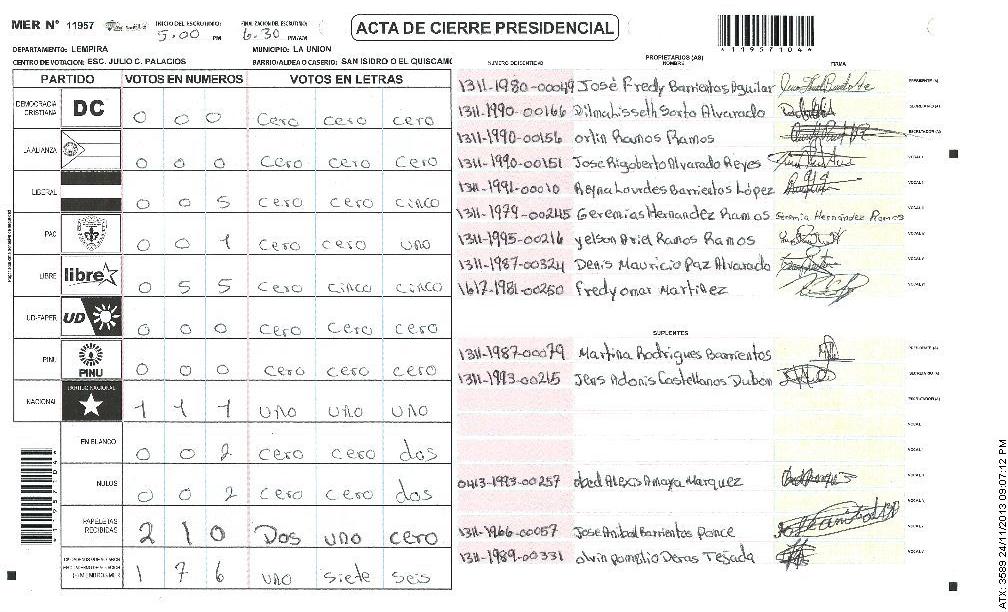 MER N° 11957 INICIO DEL ESCRUTINIO: 5.00 PM FINALIZACION DEL ESCRUTINIO: 6.30 PM/AM
ACTA DE CIERRE PRESIDENCIAL
DEPARTAMENTO: LEMPIRA MUNICIPIO: LA UNION
CENTRO DE VOTACION: ESC. JULIO C. PALACIOS BARRIO/ALDEA O CASERIO: SAN ISIDRO O EL QUISCAMO
PARTIDO VOTOS EN NUMEROS VOTOS EN LETRAS
DEMOCRACIA CRISTIANA DC 0 0 0 cero cero cero
LA ALIANZA 0 0 0 cero cero cero
LIBERAL 0 0 5 cero cero cinco
PAC 0 0 1 cero cero uno
LIBRE libre 0 5 5 cero cinco cinco
UD-FAPER UD 0 0 0 cero cero cero
PINU PINU 0 0 0 cero cero cero
NACIONAL PARTIDO NACIONAL 1 1 1 uno uno uno
EN BLANCO 0 0 2 cero cero dos
NULOS 0 0 2 cero cero dos
PAPELETAS RECIBIDAS 2 1 0 Dos uno cero
1 7 6 uno siete seis
PROPIETARIOS (AS)
NUMERO DE IDENTIDAD NOMBRE FIRMA
1311-1980-00049 José Fredy Barrientos Aguilar PRESIDENTE (A)
1311-1990-00166 Dilma Lisseth Sorto Alvarado SECRETARIO (A)
1311-1990-00156 ortin Ramos Ramos ESCRUTADOR (A)
1311-1990-00151 Jose Rigoberto Alvarado Reyes VOCAL I
1311-1991-00010 Reyna Lourdes Barrientos López
1311-1979-00245 Geremias Hernandez Ramos Geremia Hernández Ramos
1311-1995-00216 yelson Ariel Ramos Ramos
1311-1987-00324 Denis Mauricio Paz Alvarado
1617-1981-00250 Fredy omar Martinez
SUPLENTES
1311-1987-00079 Martina Rodrigues Barrientos PRESIDENTE (A)
1311-1993-00265 Jens Adonis Castellanos Dubon SECRETARIO (A)
ESCRUTADOR (A)
VOCAL I
0413-1993-00257 obed Alexis Amaya Marquez
1311-1966-00057 Jose Anibal Barrientos Ponce
1311-1989-00331 olvin Pompilio Deras Tejada
*119571044*
ATX: 3589 24/11/2013 09:07:12 PM